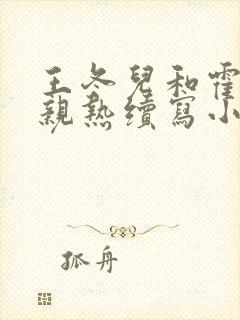 王冬兒和霍
親熱續寫小
孤舟